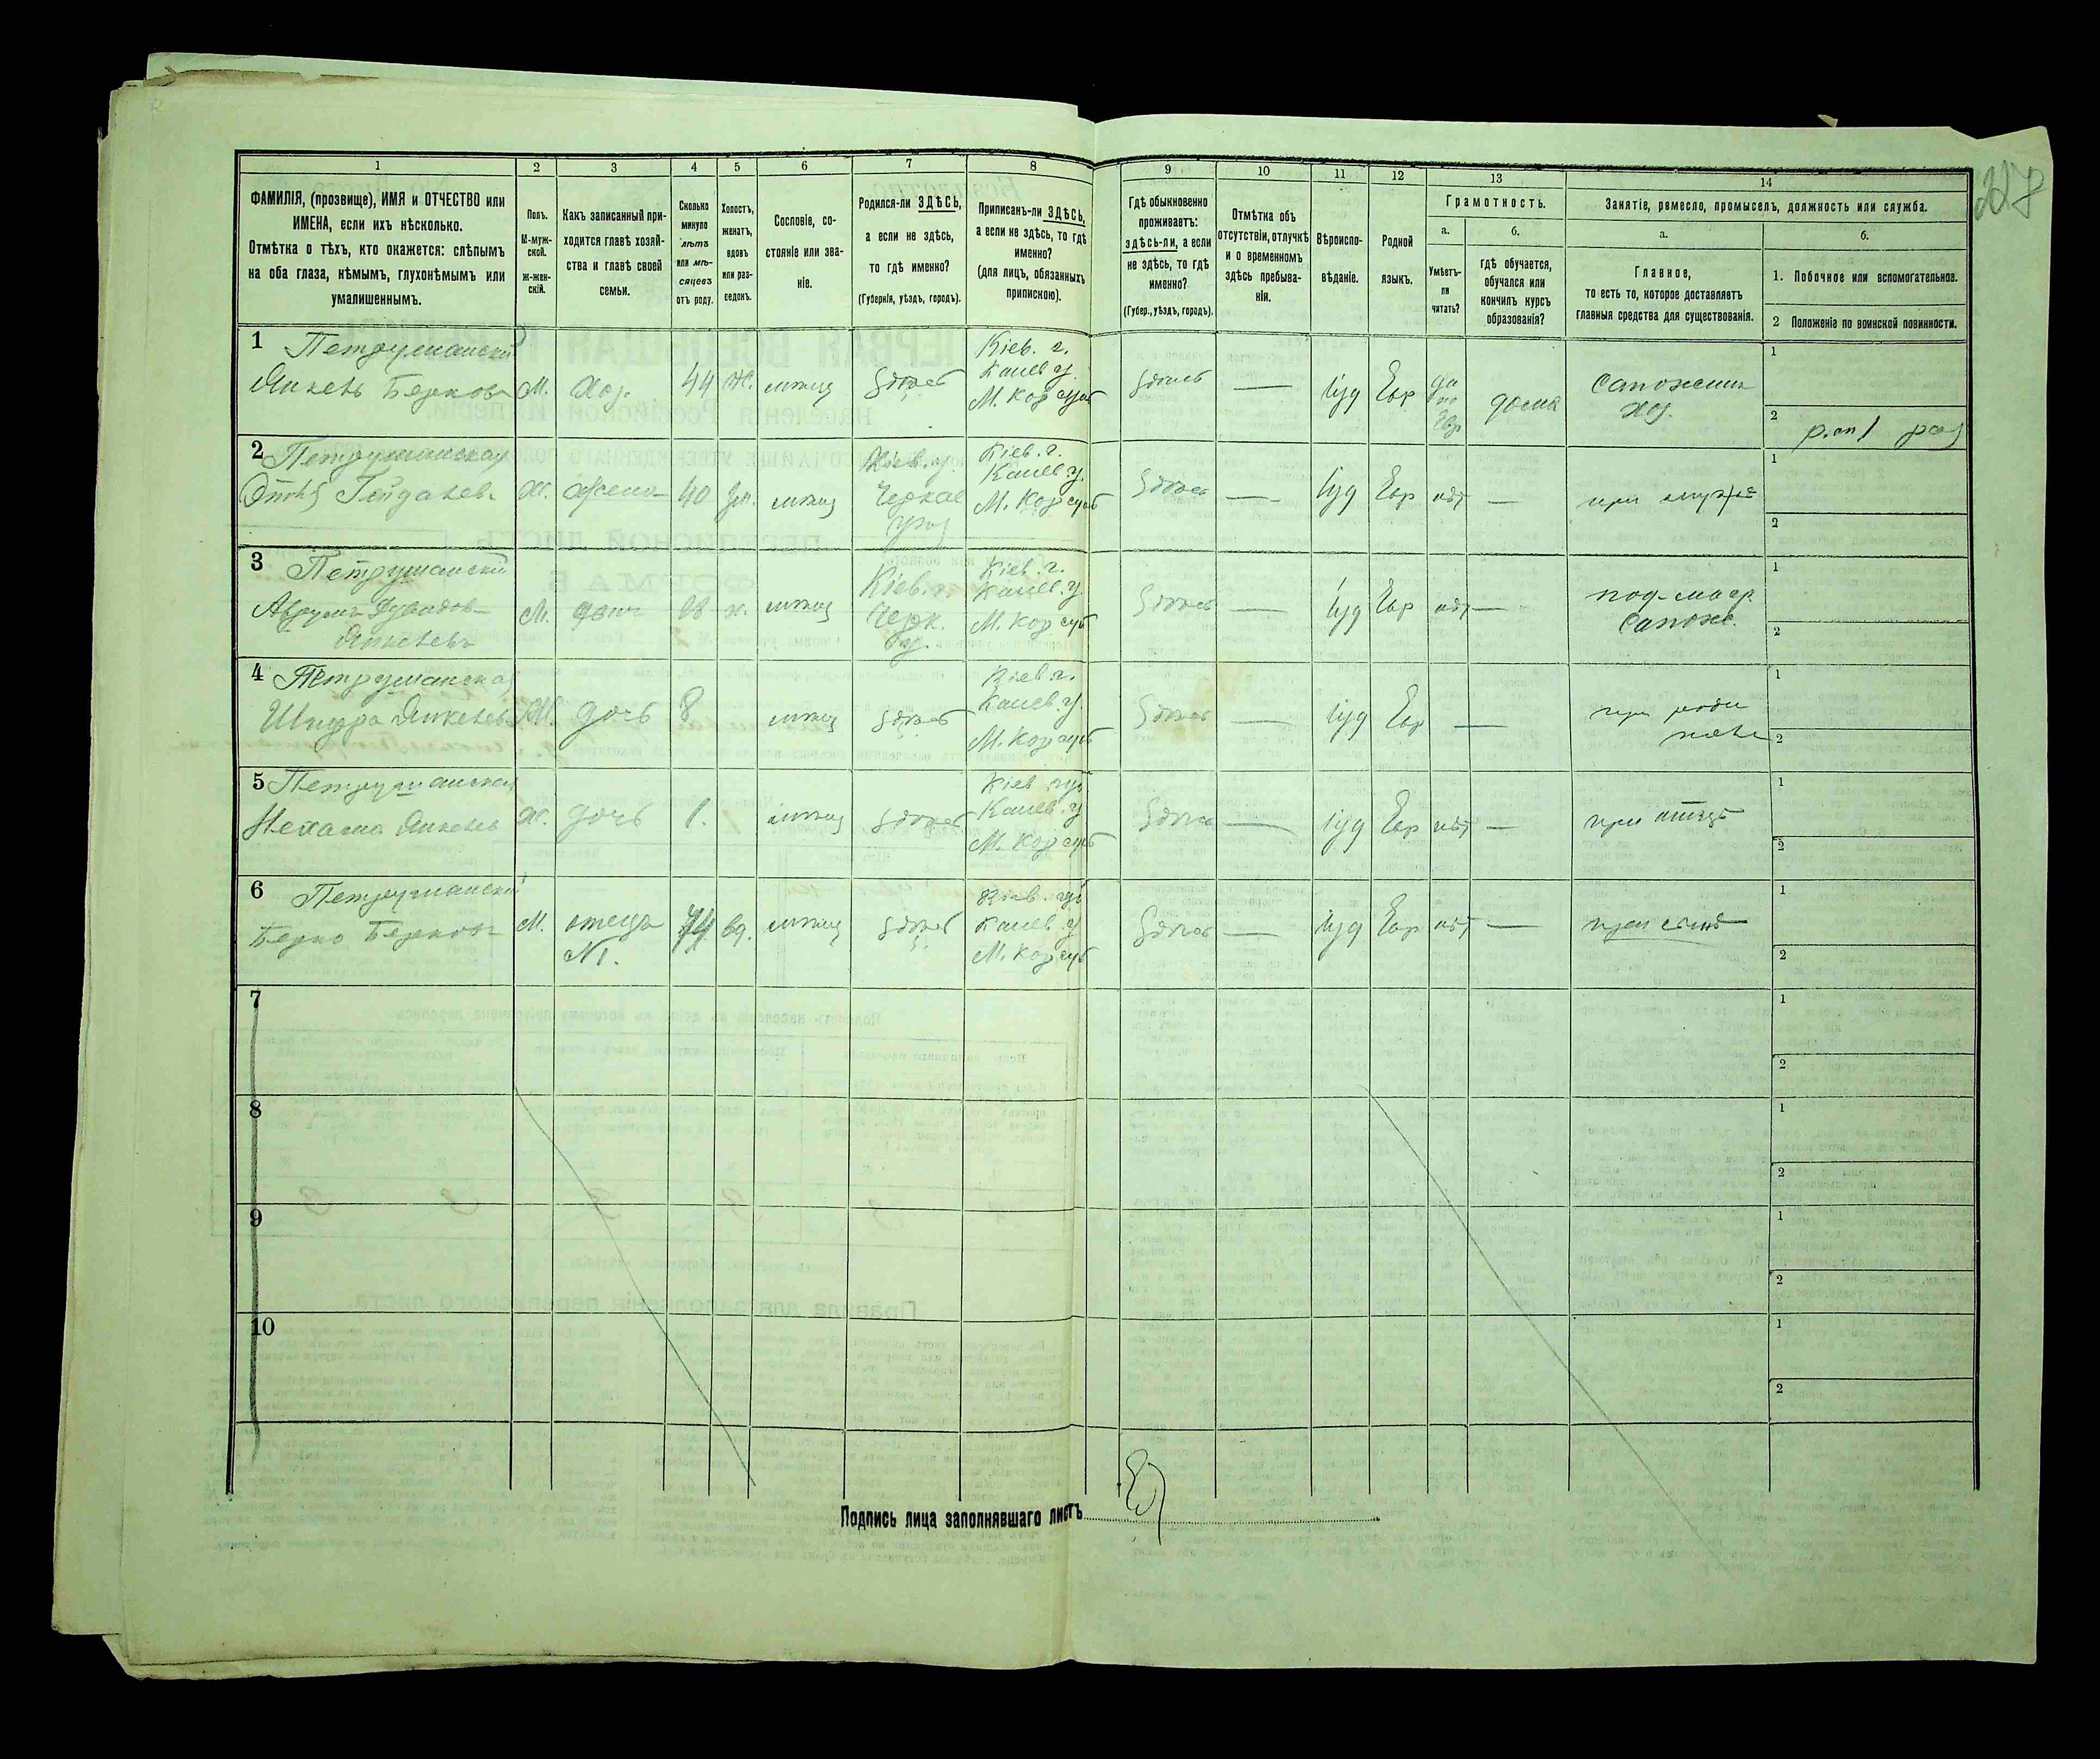 1 2 3 4 5 6 7 8 9 10 11 12 13 14
ФАМИЛІЯ, (прозвище), ИМЯ и ОТЧЕСТВО или
ИМЕНА, если ихъ нѣсколько.
Отмѣтка о тѣхъ, кто окажется: слѣпымъ
на оба глаза, нѣмымъ, глухонѣмымъ или
умалишеннымъ.
Полъ.
М-муж-
ской.
ж-жен-
скій.
Какъ записанный при-
ходится главѣ хозяй-
ства и главѣ своей
семьи.
Сколько
минуло
лѣтъ
или мѣ-
сяцевъ
отъ роду.
Холостъ,
женатъ,
вдовъ
или раз-
веденъ.
Сословіе, со-
стояніе или зва-
ніе.
Родился-ли ЗДѢСЬ,
а если не здѣсь,
то гдѣ именно?
(Губернія, уѣздъ, городъ).
Приписанъ-ли ЗДѢСЬ,
а если не здѣсь, то гдѣ
именно?
(для лицъ, обязанныхъ
припискою).
Гдѣ обыкновенно
проживаетъ:
здѣсь-ли, а если
не здѣсь, то гдѣ
именно?
(Губер., уѣздъ, городъ).
Отмѣтка объ
отсутствіи, отлучкѣ
и о временномъ
здѣсь пребыва-
ніи.
Вѣроиспо-
вѣданіе.
Родной
языкъ.
Грамотность.
а.
Умѣетъ-
ли
читать?
б.
гдѣ обучается,
обучался или
кончилъ курсъ
образованія?
Занятіе, ремесло, промыселъ, должность или служба.
а.
Главное,
то есть то, которое доставляетъ
главныя средства для существованія.
б.
1. Побочное или вспомогательное.
2 Положеніе по воинской повинности.
1 Петрушански
Янкель Берков М. хоз. 44 ж. мѣщ здѣсь
Кіев. г.
Канев у.
М. Корсунь
здѣсь — Іуд Евр
да
по
Евр
дома
сапожник
хоз.
1
2
2 Петрушанская
Ж. жена 40 зм. мѣщ
Кіев. г.
Черкас
уѣз
Кіев. г.
Канев у.
М. Корсунь
здѣсь — Іуд Евр нѣт — при мужѣ
1
2
3 Петрушански
Янкелев
М. сын 18 х. мѣщ
Кіев. г.
Черк.
у.
Кіев. г.
Канев. у.
М. Корсунь
здѣсь — Іуд Евр нѣт —
под-мастер
сапож.
1
2
4 Петрушанска
Янкелев Ж. дочь 8 мѣщ здѣсь
Кіев. г.
Канев. у.
М. Корсунь
здѣсь — Іуд Евр —
при роди
телѣ
1
2
5 Петрушанская
Нехама Янкелев Ж. дочь 1. мѣщ здѣсь
Кіев. губ
Канев. у
М. Корсунь
здѣсь — Іуд Евр нѣт — при отцѣ
1
2
6 Петрушански
Берко Берков М. отец 74 вд. мѣщ здѣсь
N1.
Кіев. губ
Канев. у
М. Корсунь
здѣсь — Іуд Евр нѣт — при сынѣ
1
2
7
1
2
8
1
2
9
1
2
10
1
2
Подпись лица заполнявшаго листъ